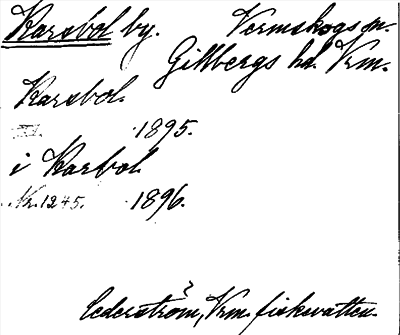 Karsbol by. Vermskogs sn.
Gillbergs hd. Vrm.
Karsbol.
1895.
i Karbol
Nr. 1245. 1896.
Cederström, Vrm. fiskvatten.